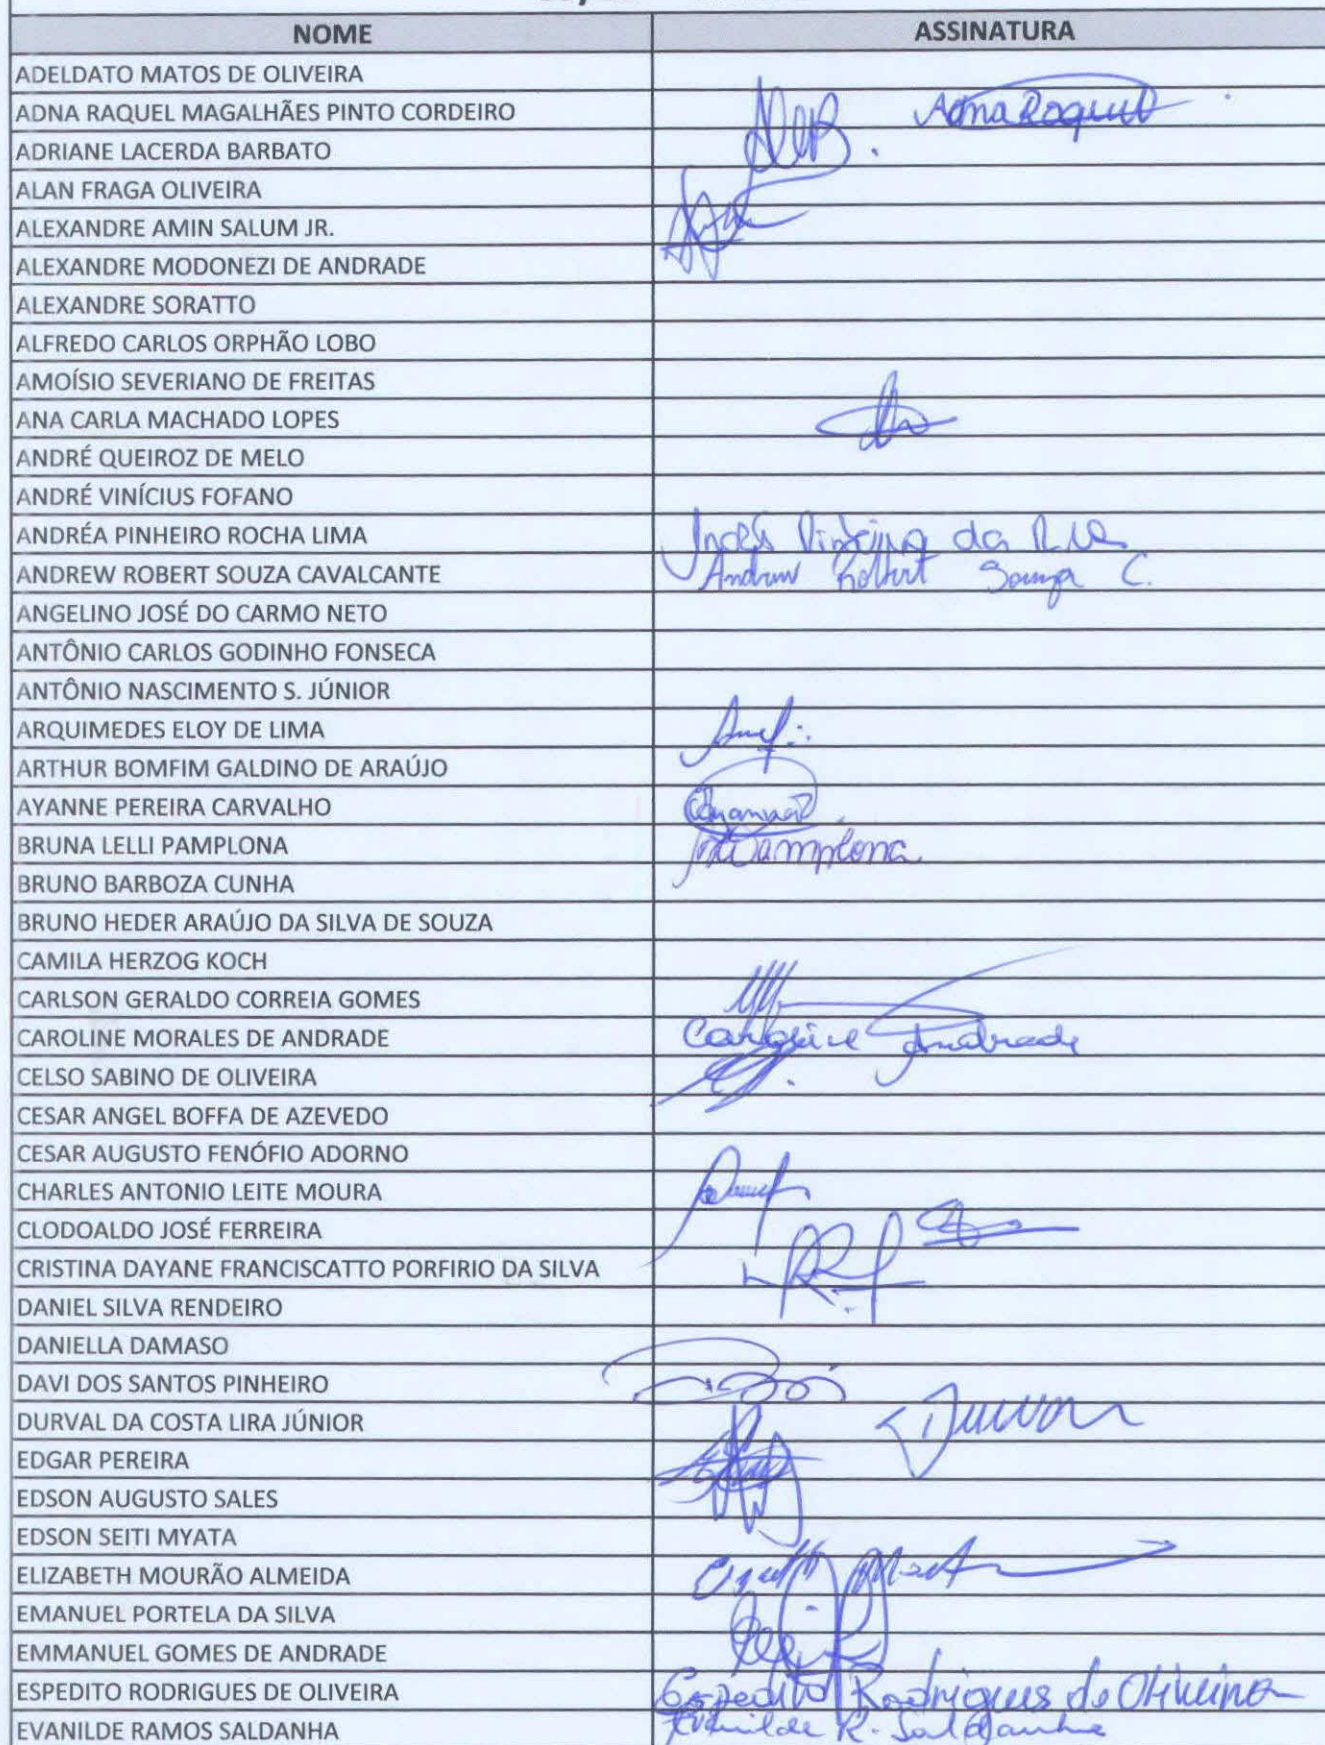 NOME ASSINATURA
ADELDATO MATOS DE OLIVEIRA
ADNA RAQUEL MAGALHÃES PINTO CORDEIRO Adna Raquel
ADRIANE LACERDA BARBATO
ALAN FRAGA OLIVEIRA
ALEXANDRE AMIN SALUM JR.
ALEXANDRE MODONEZI DE ANDRADE
ALEXANDRE SORATTO
ALFREDO CARLOS ORPHÃO LOBO
AMOÍSIO SEVERIANO DE FREITAS
ANA CARLA MACHADO LOPES
ANDRÉ QUEIROZ DE MELO
ANDRÉ VINÍCIUS FOFANO
ANDRÉA PINHEIRO ROCHA LIMA
ANDREW ROBERT SOUZA CAVALCANTE Andrew Robert Souza C.
ANGELINO JOSÉ DO CARMO NETO
ANTÔNIO CARLOS GODINHO FONSECA
ANTÔNIO NASCIMENTO S. JÚNIOR
ARQUIMEDES ELOY DE LIMA
ARTHUR BOMFIM GALDINO DE ARAÚJO
AYANNE PEREIRA CARVALHO
BRUNA LELLI PAMPLONA Pamplona
BRUNO BARBOZA CUNHA
BRUNO HEDER ARAÚJO DA SILVA DE SOUZA
CAMILA HERZOG KOCH
CARLSON GERALDO CORREIA GOMES
CAROLINE MORALES DE ANDRADE Caroline Andrade
CELSO SABINO DE OLIVEIRA
CESAR ANGEL BOFFA DE AZEVEDO
CESAR AUGUSTO FENÓFIO ADORNO
CHARLES ANTONIO LEITE MOURA
CLODOALDO JOSÉ FERREIRA
CRISTINA DAYANE FRANCISCATTO PORFIRIO DA SILVA
DANIEL SILVA RENDEIRO
DANIELLA DAMASO
DAVI DOS SANTOS PINHEIRO
DURVAL DA COSTA LIRA JÚNIOR
EDGAR PEREIRA
EDSON AUGUSTO SALES
EDSON SEITI MYATA
ELIZABETH MOURÃO ALMEIDA
EMANUEL PORTELA DA SILVA
EMMANUEL GOMES DE ANDRADE
ESPEDITO RODRIGUES DE OLIVEIRA Espedito Rodrigues de Oliveira
EVANILDE RAMOS SALDANHA Evanilde R. Saldanha